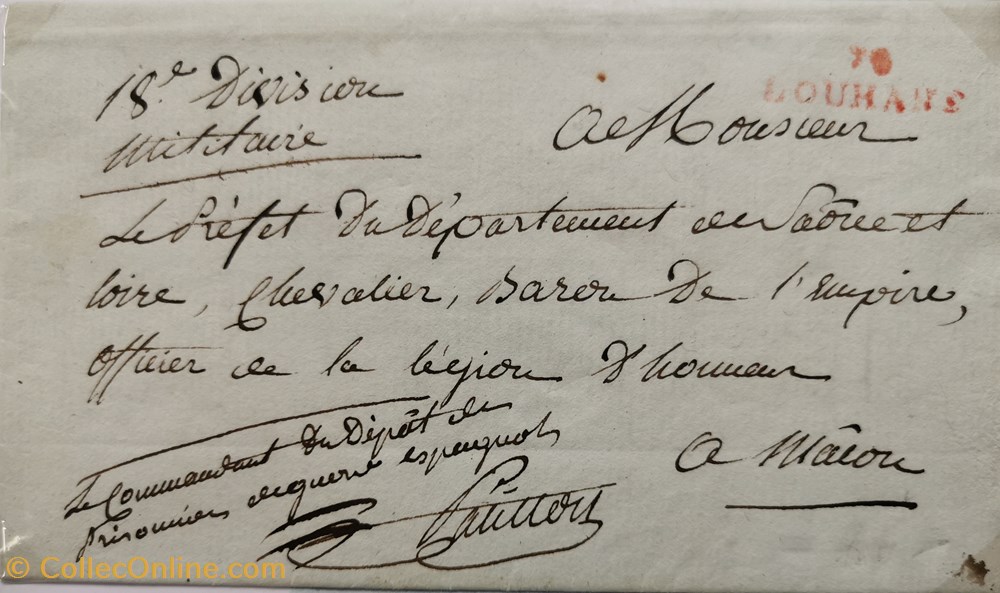 18e Division
Militaire
70
LOUHANS
A Monsieur
Le Préfet Du Département de Saône et
loire, Chevalier, Baron De l'Empire,
officier de la légion D'honneur
A Mâcon
Le Commandant Du Dépôt de
prisonniers de guerre espagnols
© CollecOnline.com